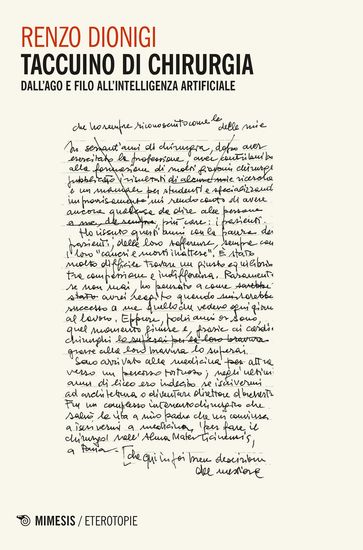 RENZO DIONIGI
TACCUINO DI CHIRURGIA
DALL'AGO E FILO ALL'INTELLIGENZA ARTIFICIALE
che ho sempre riconosciuto come la delle mie
In sessant'anni di chirurgia, dopo aver
esercitato la professione, aver contribuito
alla formazione di molti giovani chirurghi
pubblicato i risultati di alcune mie ricerche
e un manuale per studenti e specializzandi
improvvisamente mi rendo conto di avere
ancora qualcosa da dire alle persone
a me, da sempre più care: i pazienti.
Ho vissuto questi anni con la paura dei
pazienti, delle loro sofferenze, sempre con
i loro "cancri e morti inattese". È stato
molto difficile trovare un giusto equilibrio
tra compassione e indifferenza. Raramente
se non mai, ho pensato a come sarebbe
stato avrei reagito quando
successo a me quello che vedevo ogni giorno
al lavoro. Eppure, pochi anni or sono,
quel momento giunse e, grazie ai cardio
chirurghi lo superai per la loro bravura
grazie alla loro bravura lo superai.
Sono arrivato alla medicina per attra
verso un percorso tortuoso; negli ultimi
anni di liceo ero indeciso se iscrivermi
ad architettura o diventare direttore d'orchestra
Fu un complesso intervento chirurgico che
salvò la vita a mio padre che mi convinse
a iscrivermi a medicina, "per fare il
chirurgo" nell'Alma Mater Ticinensis,
a Pavia. [che qui in poi
del mestiere
MIMESIS / ETEROTOPIE